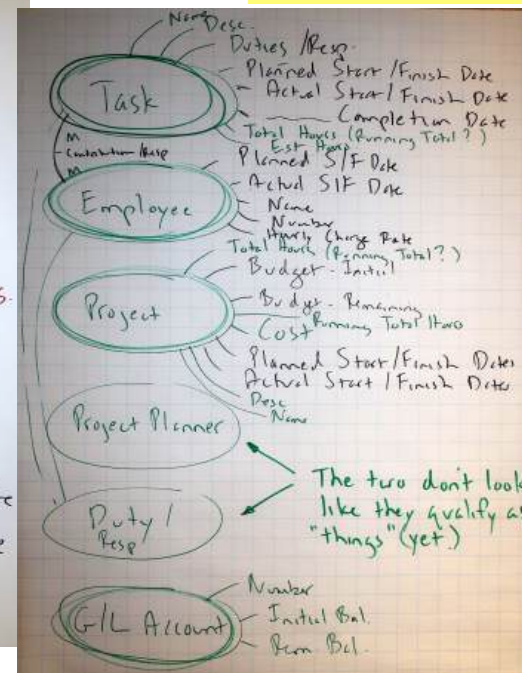 Name
Desc.
Duties / Resp.
Planned Start / Finish Date
Actual Start / Finish Date
Completion Date
Total Hours (Running Total?)
Est Hours
Task
M
Contribution / Resp
M
Planned S/F Date
Actual S/F Date
Name
Number
Hourly Charge Rate
Employee
Total Hours (Running Total?)
Budget - Initial
Budget - Remaining
Running Total
Cost
Project
Planned Start / Finish Dates
Actual Start / Finish Dates
Desc
Name
Project Planner
The two don't look
like they qualify as
"things" (yet.)
Duty /
Resp
Number
Initial Bal.
Rem Bal.
G/L Account